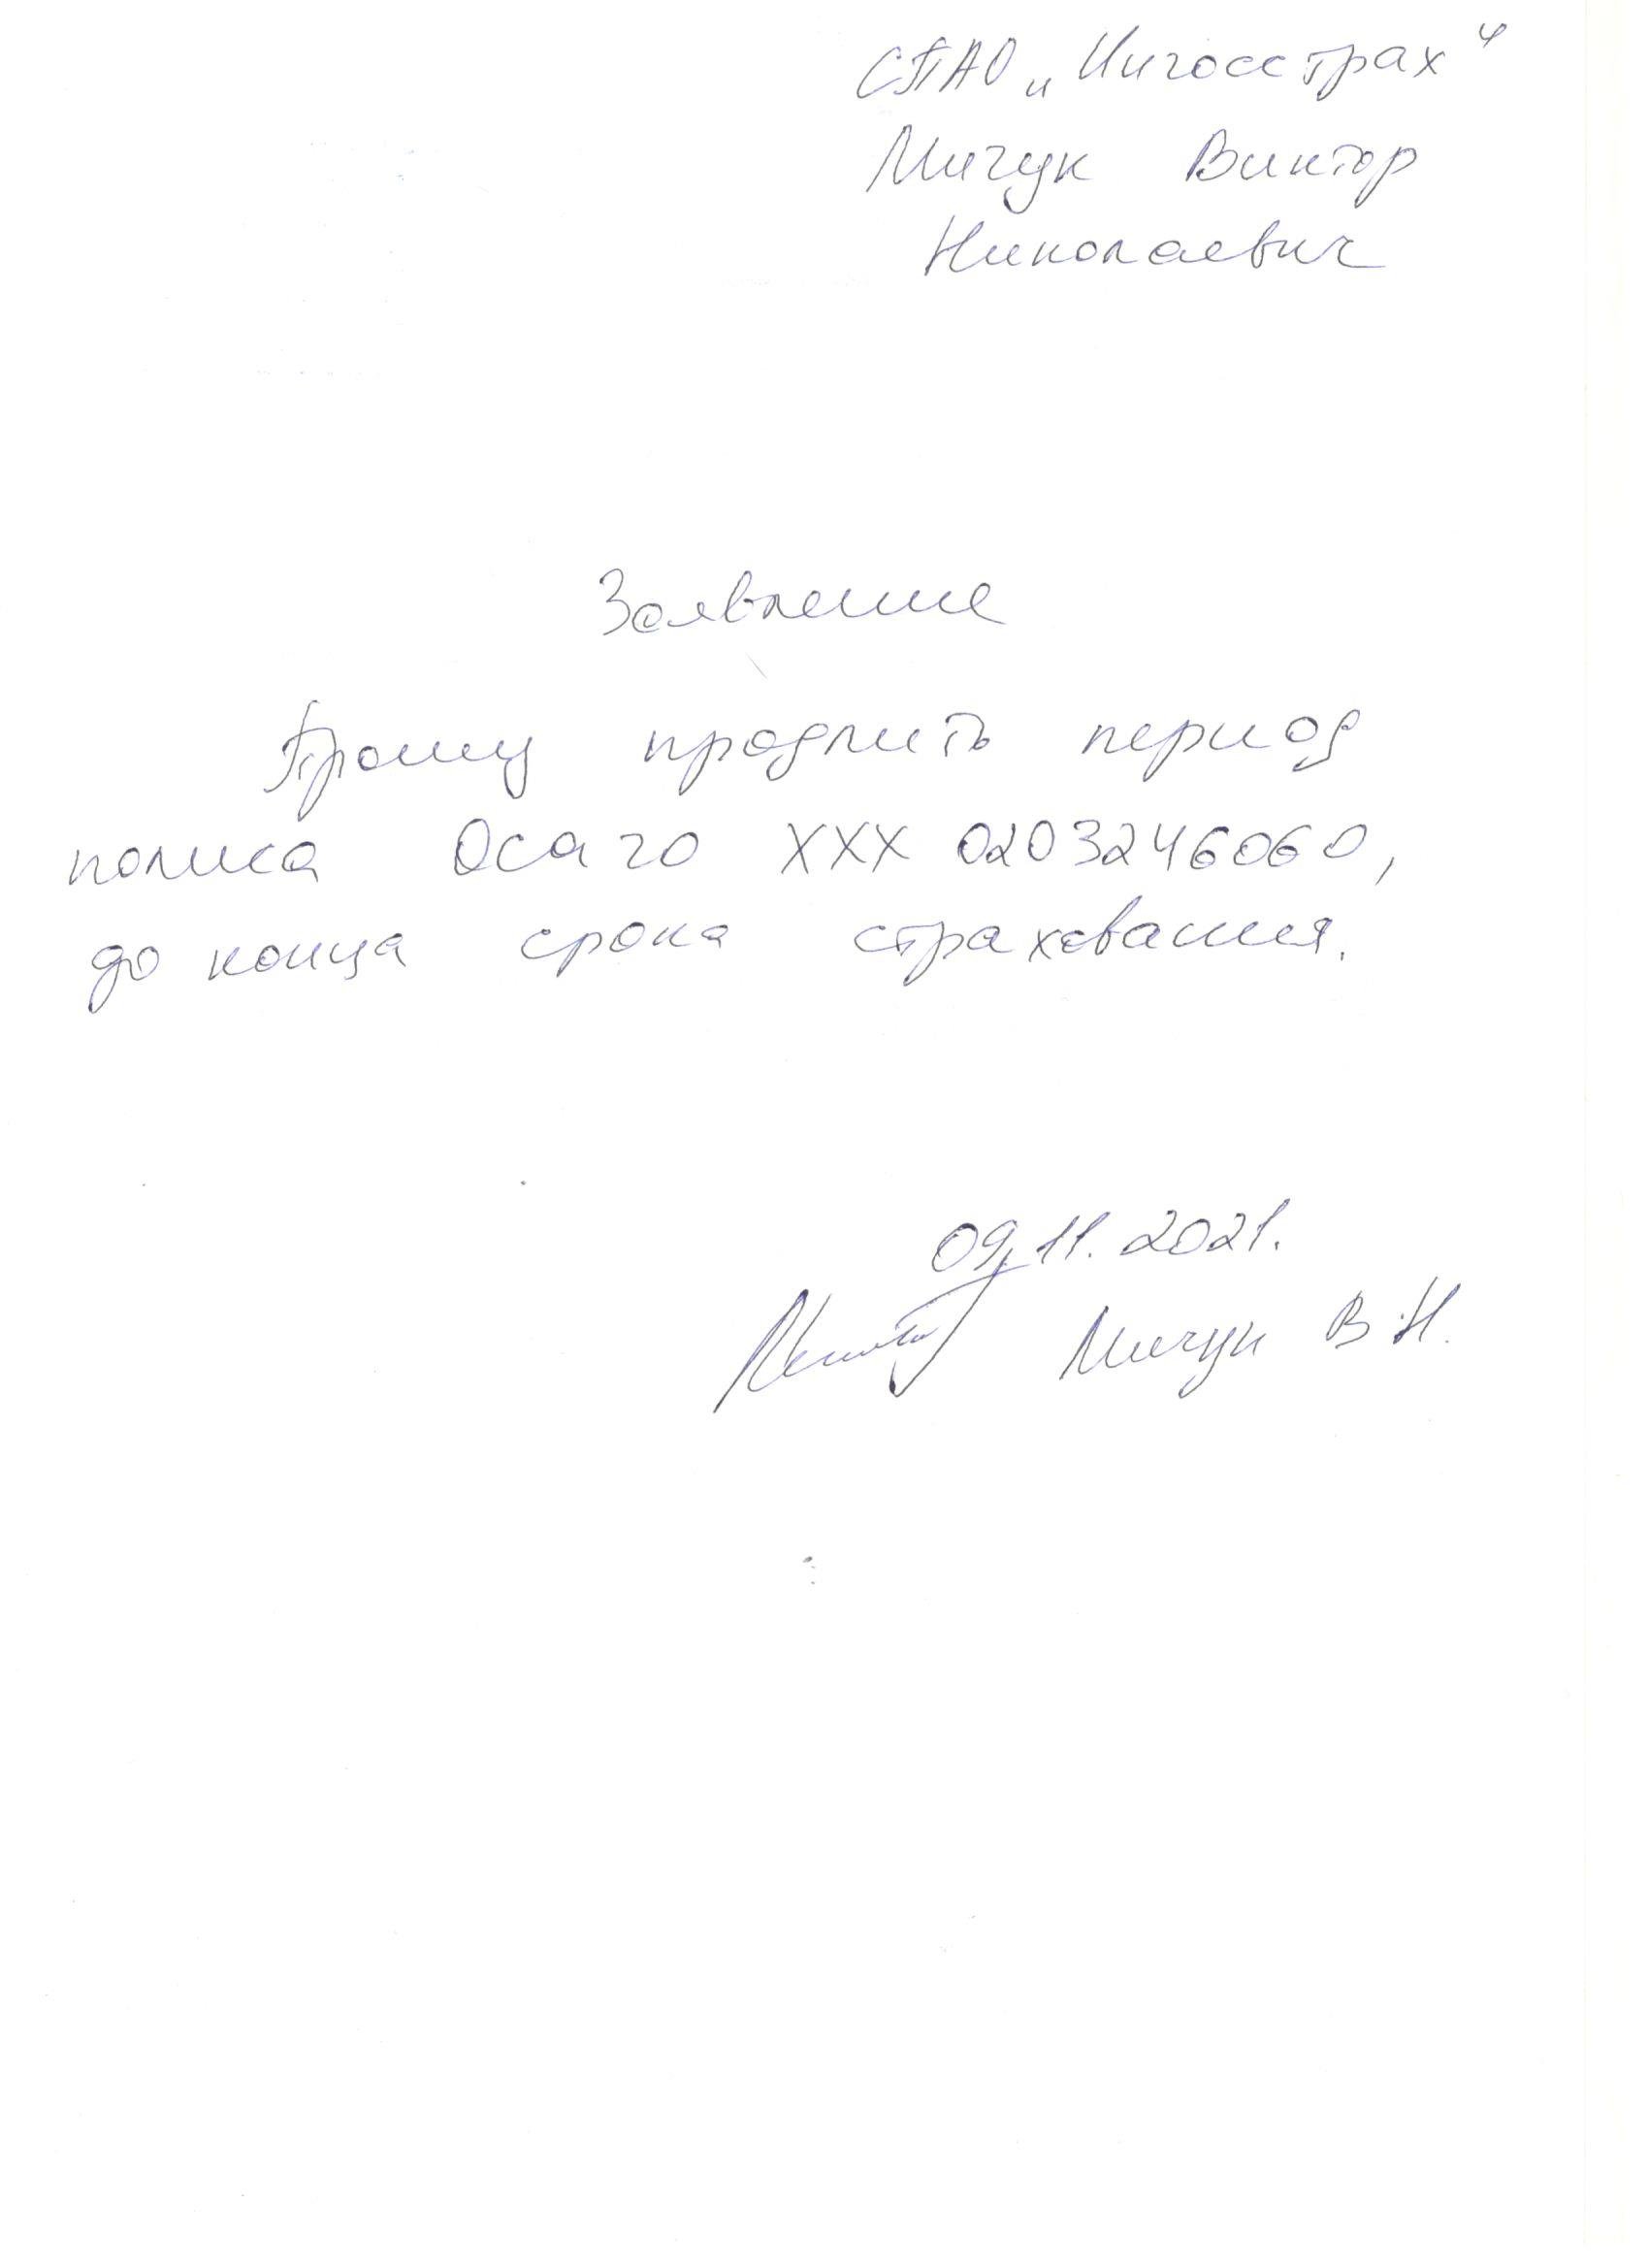 СПАО „Ингосстрах“
Мичук Виктор
Николаевич
Заявление
Прошу продлить период
полиса Осаго ХХХ 0203246060,
до конца срока страхования.
09.11.2021.
Мичук В.Н.